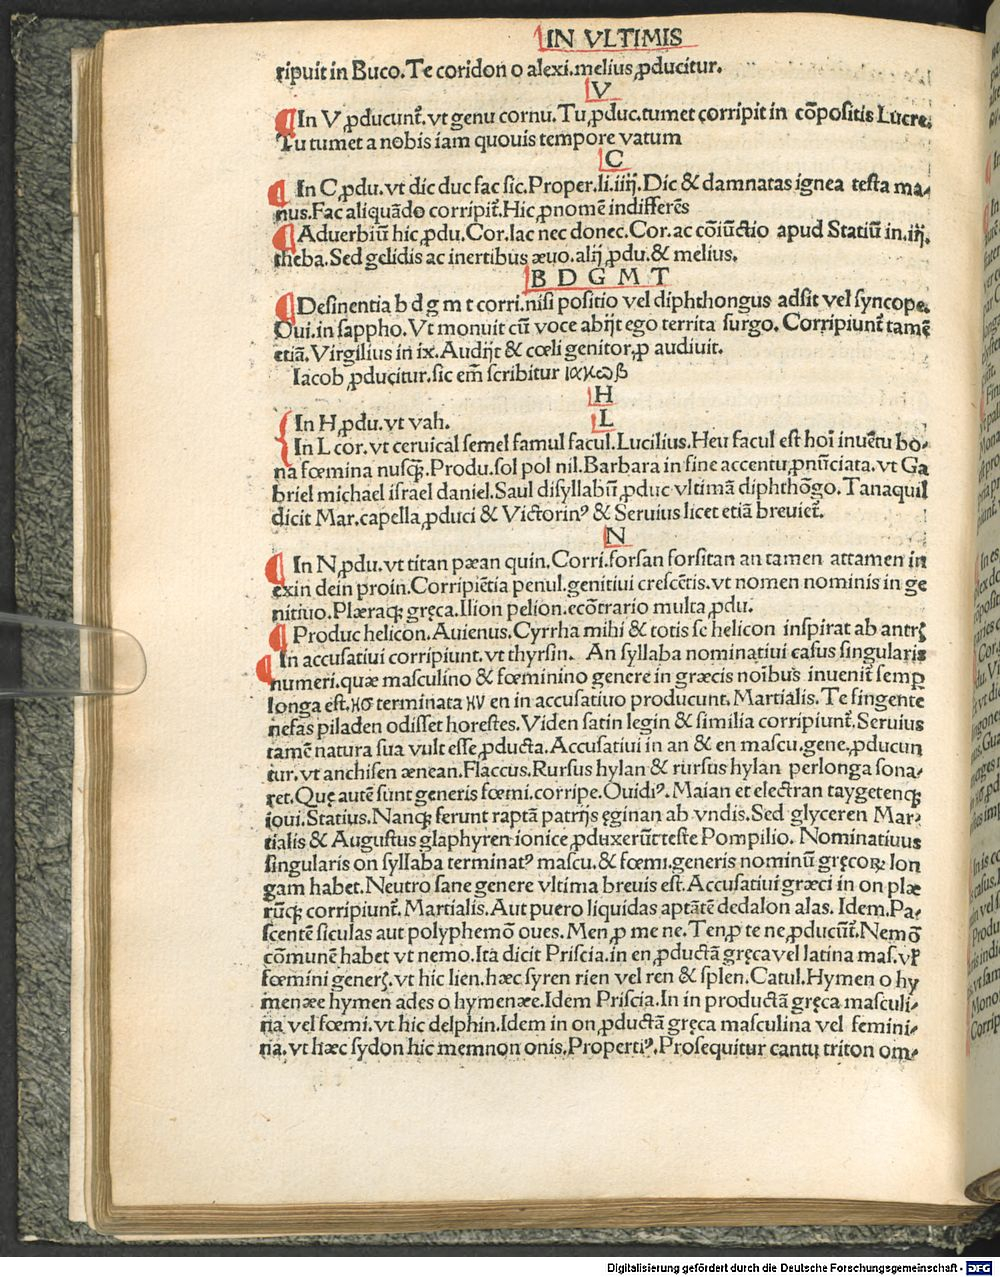 IN VLTIMIS
ripuit in Buco. Te coridon o alexi. melius ꝓducitur.
V
¶ In V ꝓducunt᷑. vt genu cornu. Tu ꝓduc. tumet corripit in cōpositis Lucre.
Tu tumet a nobis iam quouis tempore vatum
C
¶ In C ꝓdu. vt dic duc fac sic. Proper. li. iiij. Dic & damnatas ignea testa ma-
nus. Fac aliquādo corripit᷑. Hic ꝓnomē indifferēs
¶ Aduerbiū hic ꝓdu. Cor. lac nec donec. Cor. ac cōiūctio apud Statiū in. iij.
theba. Sed gelidis ac inertibus æuo. alij ꝓdu. & melius.
B D G M T
¶ Desinentia b d g m t corri. nisi positio vel diphthongus adsit vel syncope.
Oui. in sappho. Vt monuit cū voce abijt ego territa surgo. Corripiunt᷑ tamē
etiā. Virgilius in ix. Audijt & cœli genitor ꝓ audiuit.
Iacob ꝓducitur. sic em̄ scribitur ιακωβ
H
In H ꝓdu. vt vah.
L
In L cor. vt ceruical semel famul facul. Lucilius. Heu facul est hoi inuētu bo-
na fœmina nusꝗ̄. Produ. sol pol nil. Barbara in fine accentu ꝓnūciata. vt Ga
briel michael israel daniel. Saul disyllabū ꝓduc vltimā diphthōgo. Tanaquil
dicit Mar. capella ꝓduci & Victorinꝰ & Seruius licet etiā breuiet᷑.
N
¶ In N ꝓdu. vt titan pæan quin. Corri. forsan forsitan an tamen attamen in
exin dein proin. Corripiētia penul. genitiui crescētis. vt nomen nominis in ge
nitiuo. Plæraqꝫ gręca. Ilion pelion. ecōtrario multa ꝓdu.
¶ Produc helicon. Auienus. Cyrrha mihi & totis sc helicon inspirat ab antrꝭ
¶ In accusatiui corripiunt. vt thyrsin. An syllaba nominatiui casus singularis
numeri. quæ masculino & fœminino genere in græcis noībus inuenit᷑ semꝑ
longa est. ησ terminata ην en in accusatiuo producunt. Martialis. Te fingente
nefas piladen odisset horestes. Viden satin legin & similia corripiunt᷑. Seruius
tamē natura sua vult esse ꝓducta. Accusatiui in an & en mascu. gene. ꝓducun
tur. vt anchisen ænean. Flaccus. Rursus hylan & rursus hylan perlonga sona-
ret. Quę autē sunt generis fœmi. corripe. Ouidiꝰ. Maian et electran taygetenqꝫ
ioui. Statius. Nanqꝫ ferunt raptā patrijs ęginan ab vndis. Sed glyceren Mar-
tialis & Augustus glaphyren ionice ꝓduxerūt teste Pompilio. Nominatiuus
singularis on syllaba terminatꝰ mascu. & fœmi. generis nominū gręcoꝝ lon
gam habet. Neutro sane genere vltima breuis est. Accusatiui græci in on plæ
rūqꝫ corripiunt᷑. Martialis. Aut puero liquidas aptātē dedalon alas. Idem. Pa-
scentē siculas aut polyphemō oues. Men ꝓ me ne. Ten ꝓ te ne ꝓducūt᷑. Nemō
cōmunē habet vt nemo. Ita dicit Priscia. in en ꝓductā gręca vel latina mas. vꝉ
fœmini generꝭ. vt hic lien. hæc syren rien vel ren & splen. Catul. Hymen o hy
menæe hymen ades o hymenæe. Idem Priscia. In in productā gręca masculi-
na vel fœmi. vt hic delphin. Idem in on ꝓductā gręca masculina vel femini-
na. vt hæc sydon hic memnon onis. Propertiꝰ. Prosequitur cantu triton om-
Digitalisierung gefördert durch die Deutsche Forschungsgemeinschaft - DFG